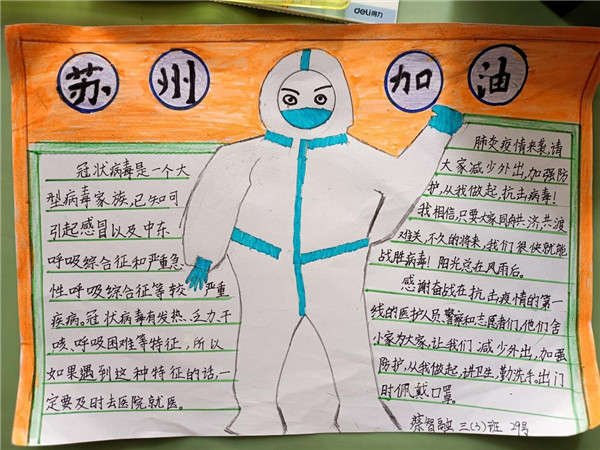 deli得力
苏州加油
冠状病毒是一个大
型病毒家族,已知可
引起感冒以及中东
呼吸综合征和严重急
性呼吸综合征等较严重
疾病。冠状病毒有发热、乏力干
咳、呼吸困难等特征,所以
如果遇到这种特征的话,一
定要及时去医院就医。
肺炎疫情来袭,请
大家减少外出,加强防
护,从我做起,抗击病毒!
我相信,只要大家同舟共济,共渡
难关,不久的将来,我们很快就能
战胜病毒!阳光总在风雨后。
感谢奋战在抗击疫情的第一
线的医护人员、警察和志愿者们,他们舍
小家为大家,让我们减少外出,加强
防护,从我做起,讲卫生,勤洗手。出门
时佩戴口罩。
蔡智 三(3)班 29号